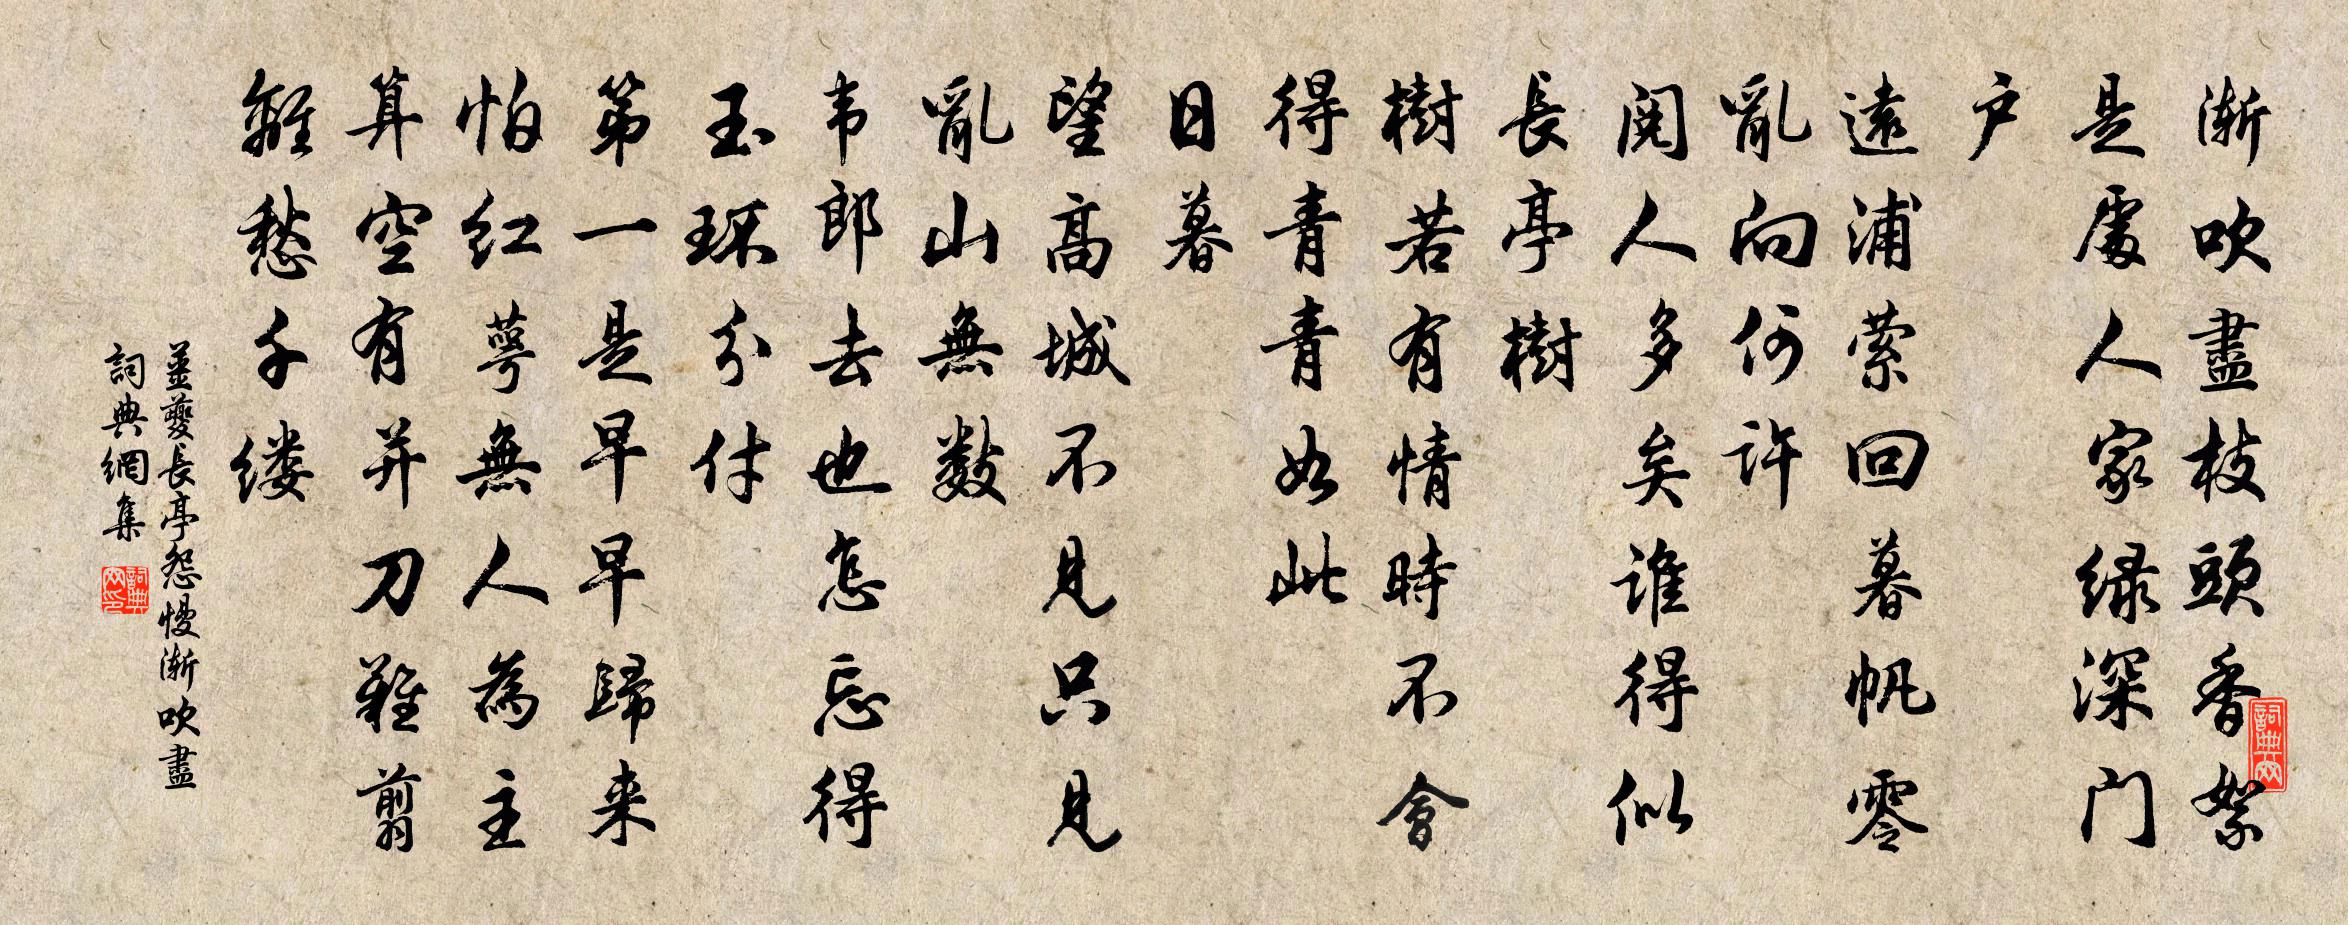 漸吹盡枝頭香絮
是處人家绿深门
户
遠浦萦回暮帆零
亂向何许
阅人多矣谁得似
長亭樹
樹若有情時不會
得青青如此
日暮
望高城不見只見
亂山無數
韦郎去也怎忘得
玉环分付
第一是早早歸来
怕红萼無人為主
算空有并刀難翦
離愁千缕
姜夔長亭怨慢漸吹盡
詞典網集
詞典网印
詞典网